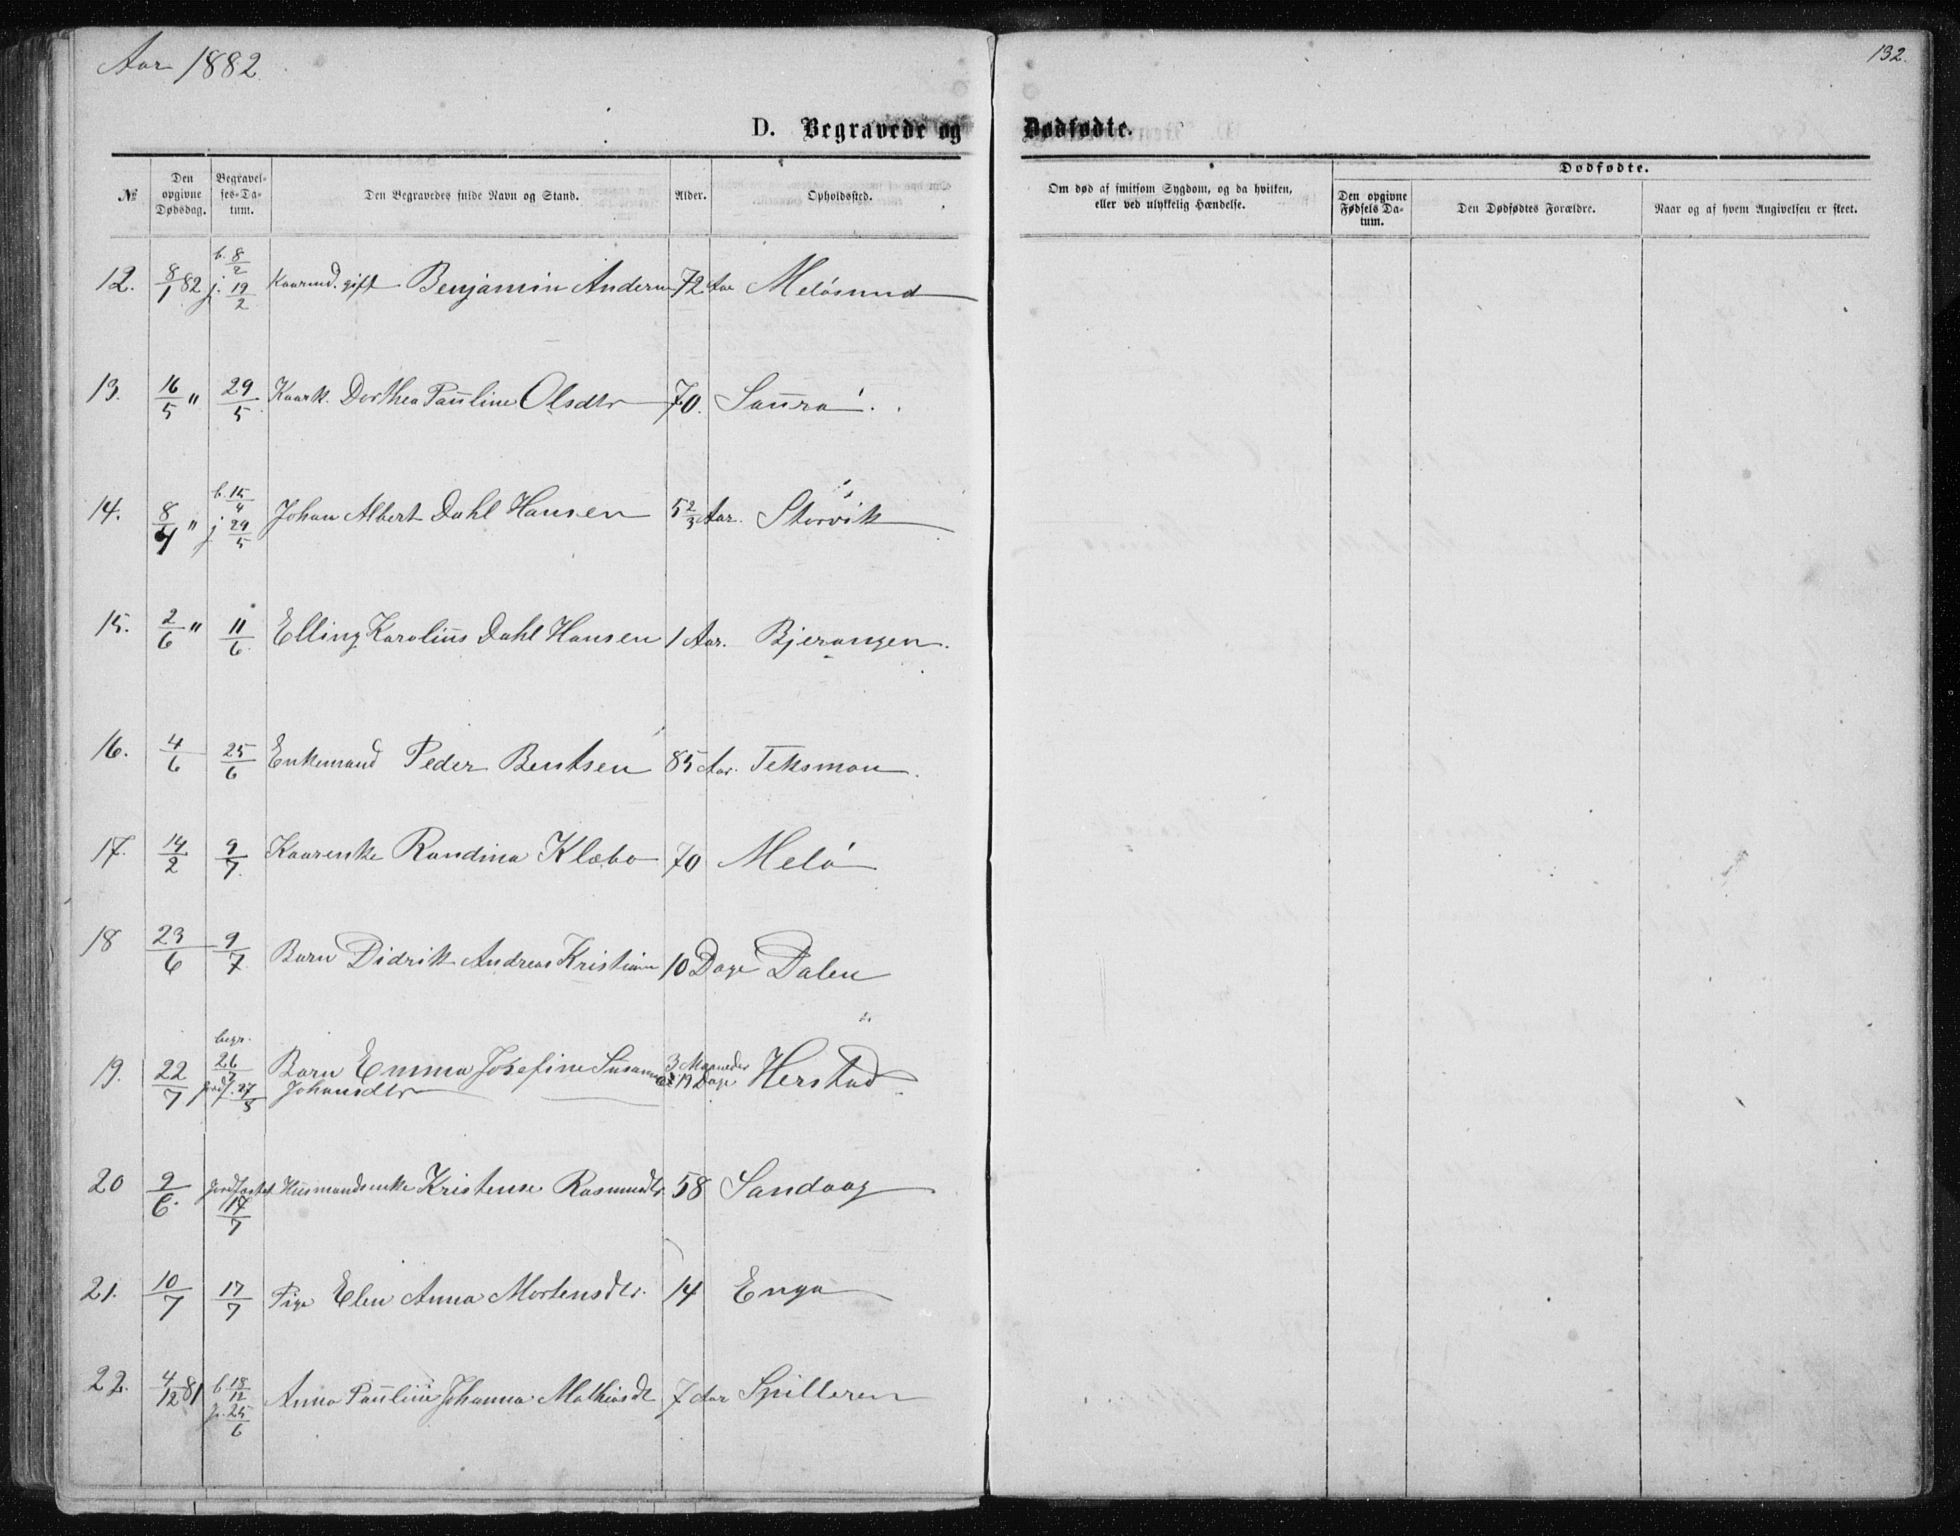 Aar 1882
132.
D. Begravede og Dødfødte.
№ | Den opgivne Dødsdag. | Begravel-ses-Da-tum. | Den Begravedes fulde Navn og Stand. | Alder. | Opholdssted. | Om død af smitsom Sygdom, og da hvilken, eller ved ulykkelig Hændelse. | Dødfødte. | Den opgivne Fødsels Da-tum. | Den Dødfødtes Forældre. | Naar og af hvem Angivelsen er skeet.
12. 8/1 82 b. 8/2 j. 19/2 Kaarmd. gift Benjamin Andersen 72 Aar Melösund
13. 16/5 " 29/5 Kaark. Dorthea Pauline Olsdtr 70. Saura.
14. 8/4 " b. 15/4 j. 29/5 Johan Albert Dahl Hansen 5 2/3 Aar. Storvik
15. 2/6 " 11/6 Elling Karolius Dahl Hansen 1 Aar. Bjerangen.
16. 4/6 25/6 Enkemand Peder Bentsen 85 Aar. Teksmon.
17. 14/2 9/7 Kaarenke Randina Klæbo 70 Melö
18 23/6 9/7 Barn Didrik Andreas Kristian 10 Dage Dalen
19. 22/7 begr. 26/7 jordf. 27/8 Barn Emma Josefine Susanna 3 Maaneder 19 Dage Herstad
Johansdtr
20 9/6. Jordfæstet 17/7 Husmandsenke Kristense Rasmusdtr 58 Sandaag
21. 10/7 17/7 Pige Elen Anna Mortensdtr. 14 Enga
22. 4/12 81 b. 18/12 j. 25/6 Anna Pauline Johanna Mathiasdt 7 Aar Spilleren